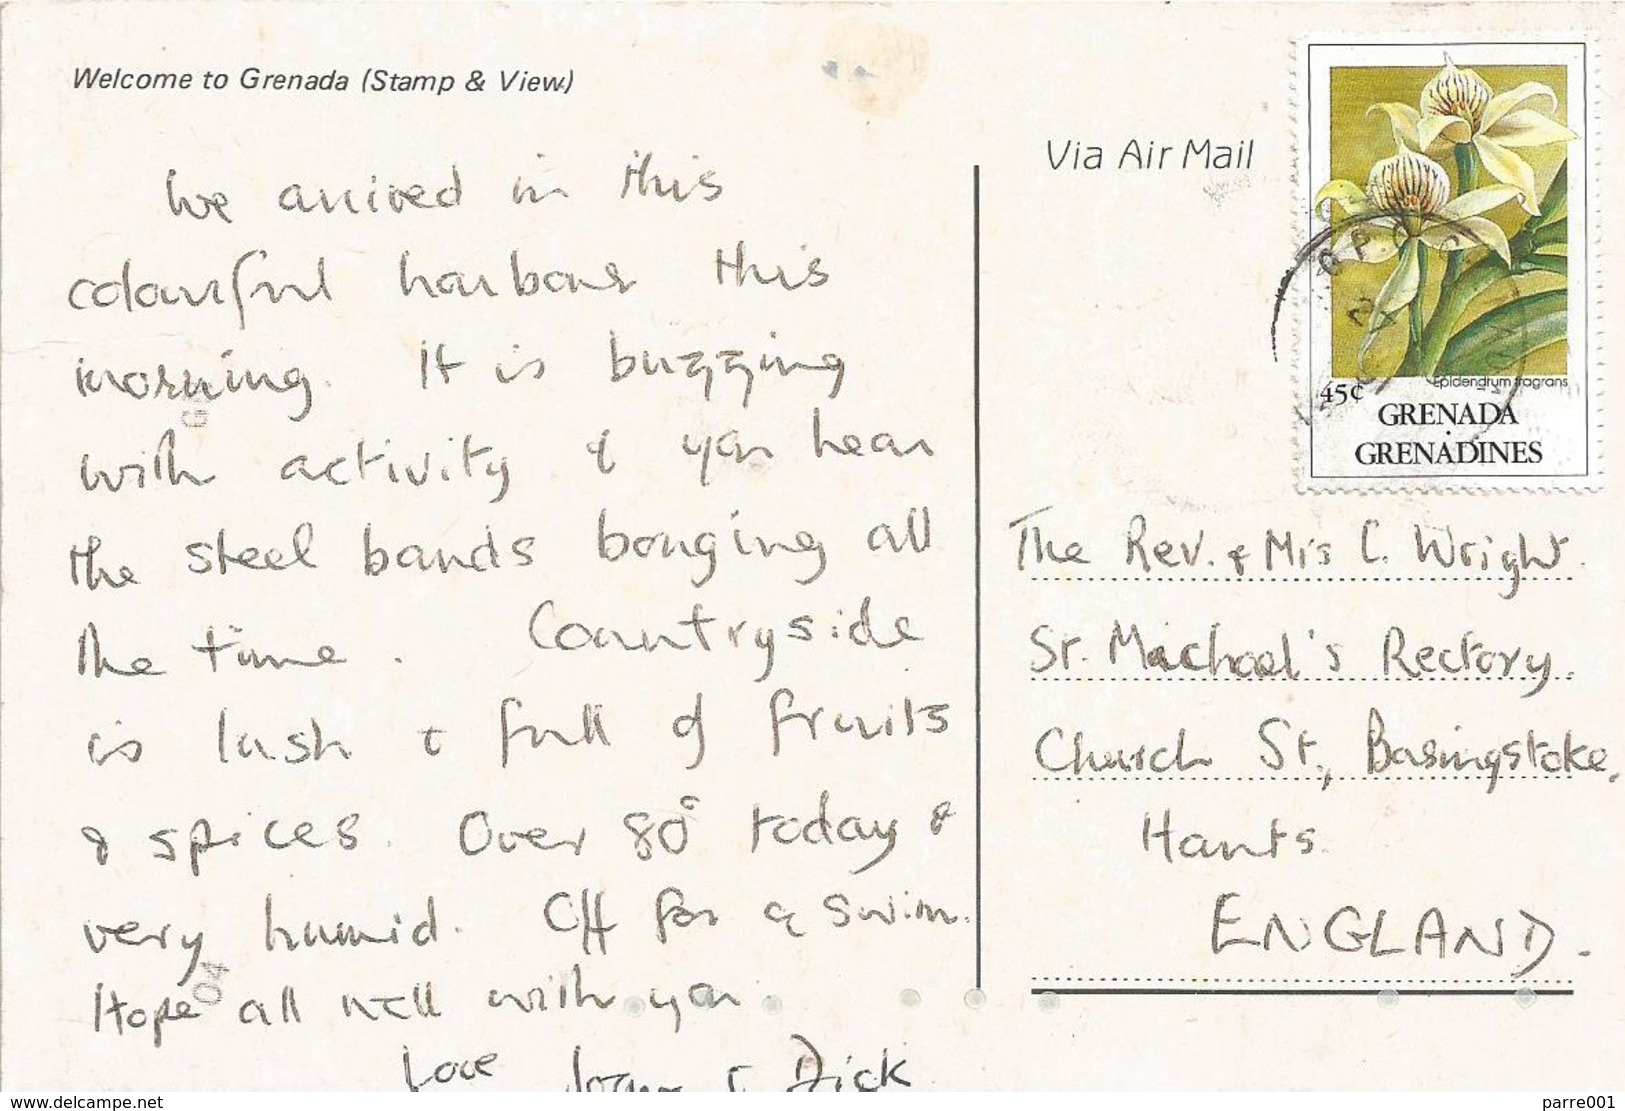 Welcome to Grenada (Stamp & View)
We arrived in this
colourful harbour this
morning. It is buzzing
with activity & you hear
the steel bands bonging all
the time. Countryside
is lush & full of fruits
& spices. Over 80° today &
very humid. Off for a swim.
Hope all well with you.
Love & Dick
Via Air Mail
Epidendrum fragrans
45¢
GRENADA
GRENADINES
The Rev. & Mrs C. Wright.
St. Michael's Rectory.
Church St., Basingstoke,
Hants.
ENGLAND.
www.delcampe.net
parre001